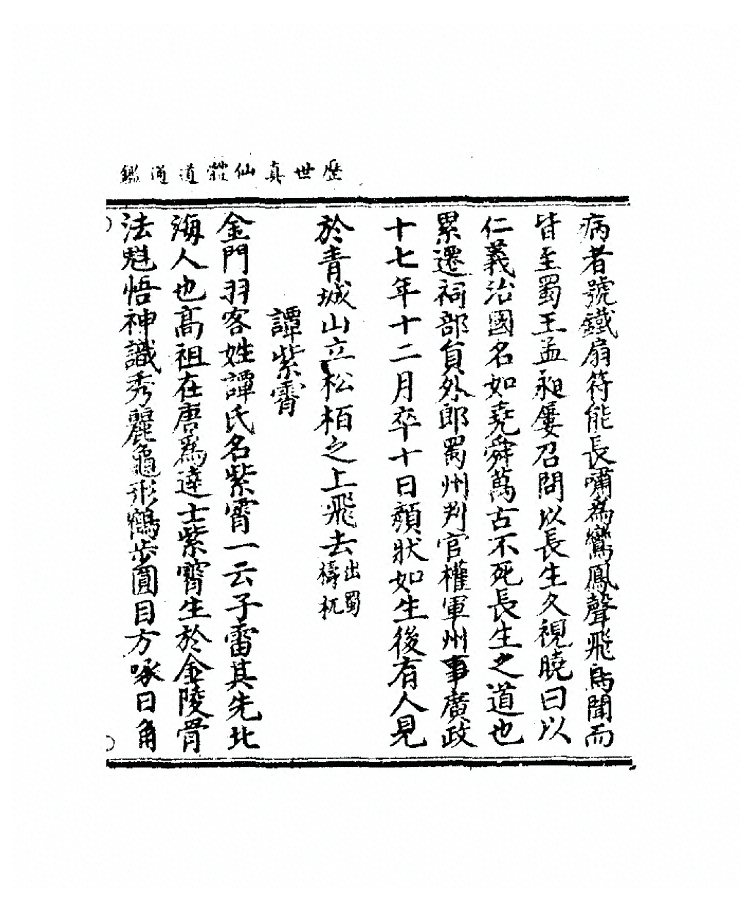 歷世真仙體道通鑑
病者號鐵扇符能長嘯為鸞鳳聲飛鳥聞而
皆至蜀王孟昶屢召問以長生久視曉曰以
仁義治國名如堯舜萬古不死長生之道也
累遷祠部員外郎蜀州判官權軍州事廣政
十七年十二月卒十日顏狀如生後有人見
於青城山立松栢之上飛去出蜀
檮杌
譚紫霄
金門羽客姓譚氏名紫霄一云子雷其先北
海人也高祖在唐為達士紫霄生於金陵骨
法魁悟神識秀麗龜形鶴步圓目方喙日角